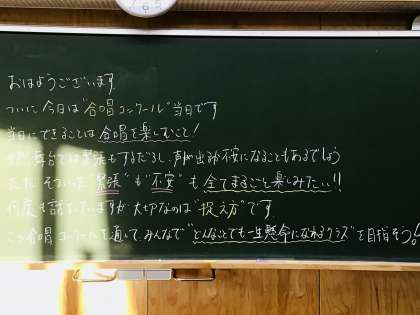 おはようございます。
ついに今日は"合唱コンクール"当日です
当日にできることは 合唱を楽しむこと!
舞台では緊張もするだろうし、声が出るか不安になることもあるでしょう
ただ そういった"緊張"も"不安"も 全てまるごと楽しみたい!!
何度も話していますが 大切なのは"捉え方"です
この合唱コンクールを通して、みんなで"どんなことでも一生懸命になれるクラス"を目指そう!